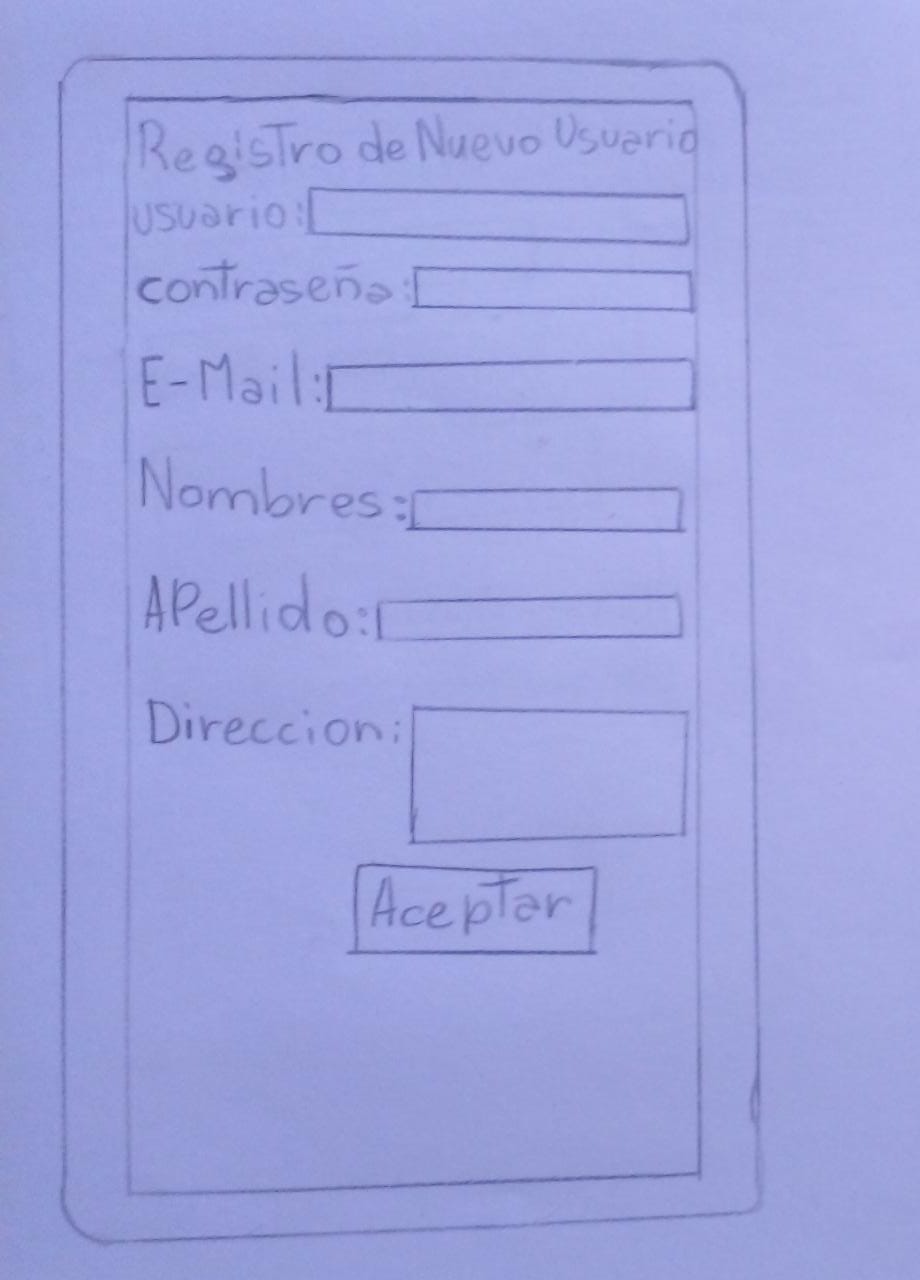 Registro de Nuevo Usuario
usuario:
contraseña:
E-Mail:
Nombres:
APellido:
Direccion:
Aceptar